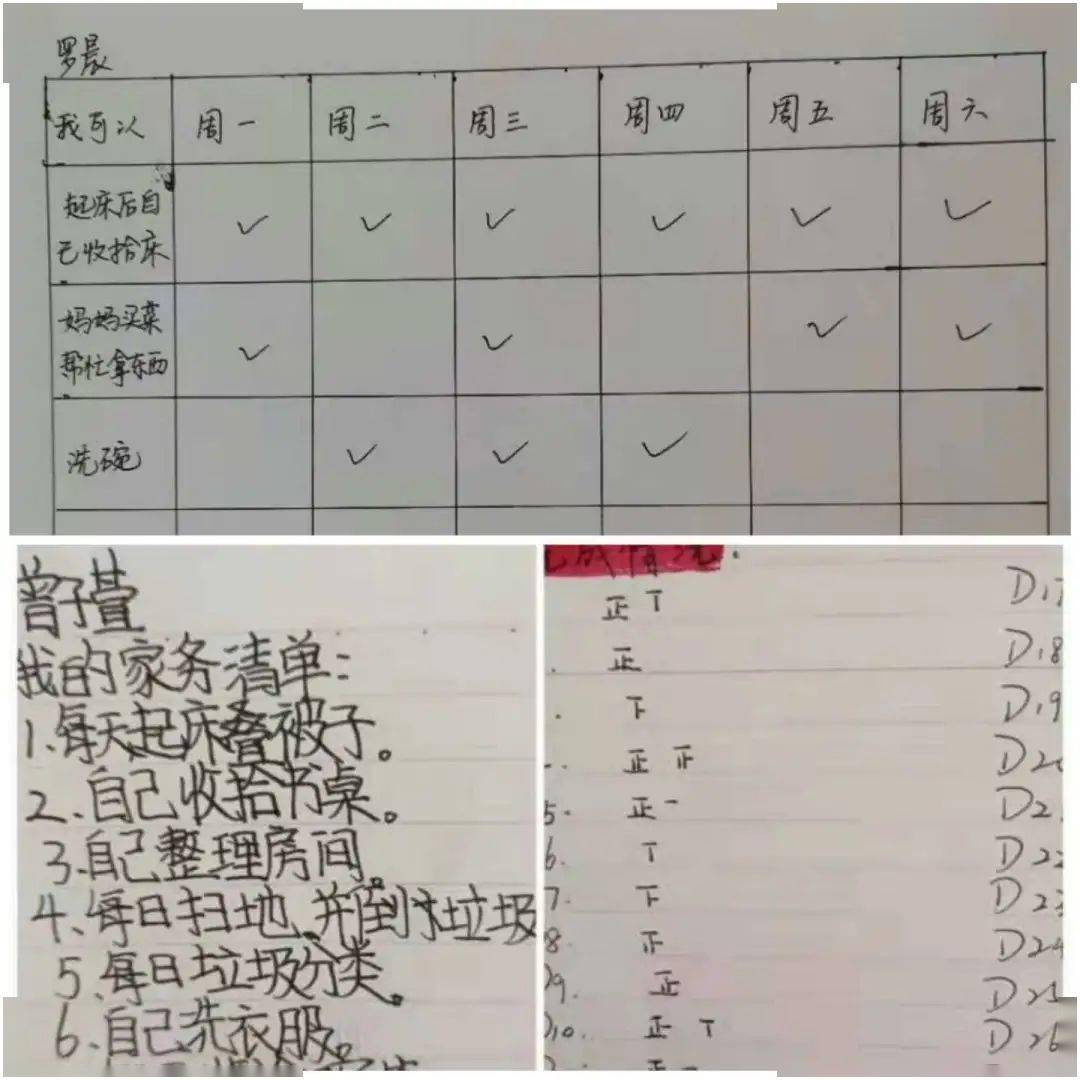 罗晨
我可以 周一 周二 周三 周四 周五 周六
起床后自 ✓ ✓ ✓ ✓ ✓ ✓
己收拾床
妈妈买菜 ✓ ✓ ✓ ✓
帮忙拿东西
洗碗 ✓ ✓ ✓
曾子萱
我的家务清单:
1.每天起床叠被子。
2.自己收拾书桌。
3.自己整理房间
4.每日扫地、并倒垃圾
5.每日垃圾分类。
6.自己洗衣服。
成情况.
正 丅 D17
正 D18
下 D19
正 正 D20
5. 正一 D2
6. 丅 D22
7. 下 D23
8. 正 D24
9. 正 D25
10. 正 丅 D26
正一